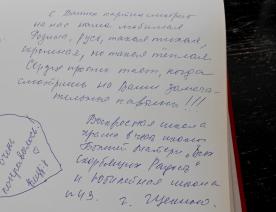 С Ваших картин смотрит
на нас наша любимая
Родина, Русь, такая тихая,
скромная, но такая тёплая.
Сердце просто тает, когда
смотришь на Ваши замеча-
тельные полотна!!!
Воскресная школа
храма в честь иконы
Божией Матери „Всех
Скорбящих Радость"
и Юбилейная школа
№43.
г.
очень
понравилось!